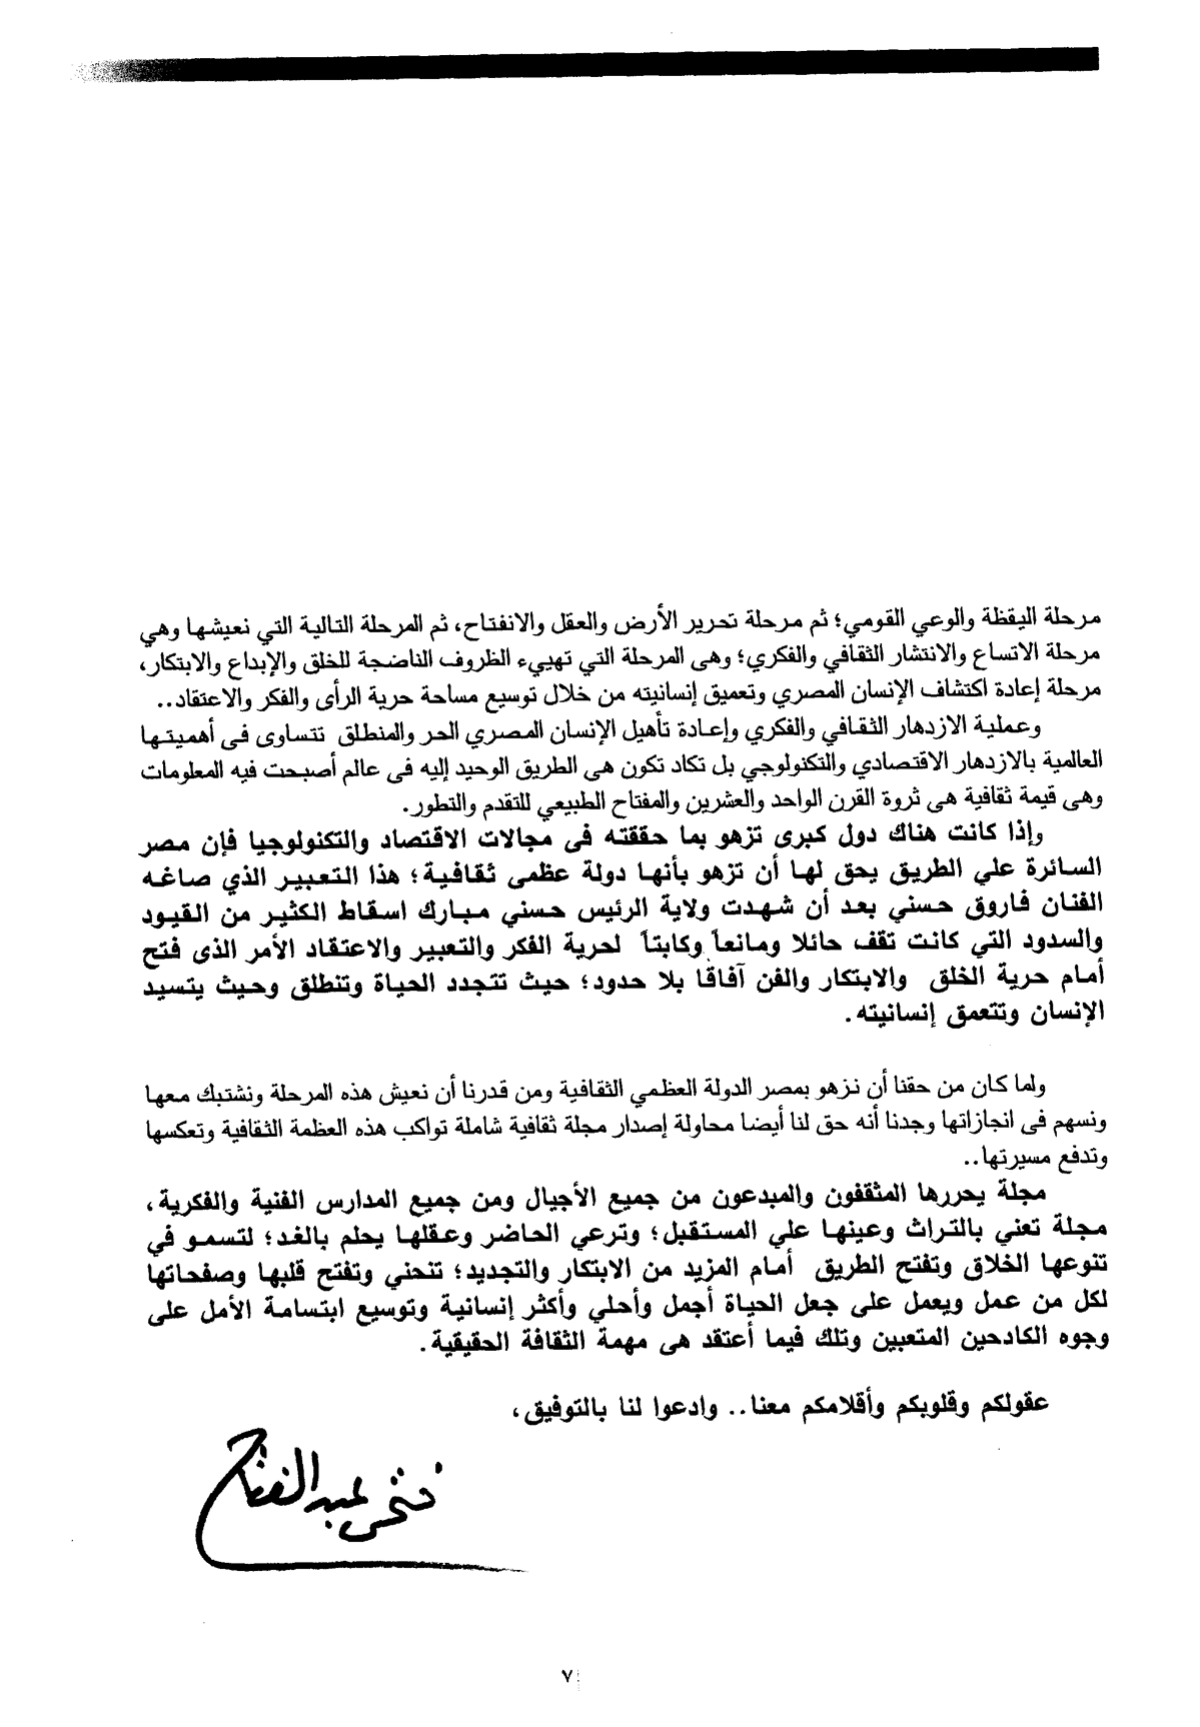 مرحلة اليقظة والوعي القومي؛ ثم مرحلة تحرير الأرض والعقل والانفتاح، ثم المرحلة التالية التي نعيشها وهي
مرحلة الاتساع والانتشار الثقافي والفكري؛ وهى المرحلة التي تهييء الظروف الناضجة للخلق والإبداع والابتكار،
مرحلة إعادة اكتشاف الإنسان المصري وتعميق إنسانيته من خلال توسيع مساحة حرية الرأى والفكر والاعتقاد..
وعملية الازدهار الثقافي والفكري وإعادة تأهيل الإنسان المصري الحر والمنطلق تتساوى فى أهميتها
العالمية بالازدهار الاقتصادي والتكنولوجي بل تكاد تكون هى الطريق الوحيد إليه فى عالم أصبحت فيه المعلومات
وهى قيمة ثقافية هى ثروة القرن الواحد والعشرين والمفتاح الطبيعي للتقدم والتطور.
وإذا كانت هناك دول كبرى تزهو بما حققته فى مجالات الاقتصاد والتكنولوجيا فإن مصر
السائرة علي الطريق يحق لها أن تزهو بأنها دولة عظمى ثقافية؛ هذا التعبير الذي صاغه
الفنان فاروق حسني بعد أن شهدت ولاية الرئيس حسني مبارك اسقاط الكثير من القيود
والسدود التي كانت تقف حائلا ومانعاً وكابتاً لحرية الفكر والتعبير والاعتقاد الأمر الذى فتح
أمام حرية الخلق والابتكار والفن آفاقًا بلا حدود؛ حيث تتجدد الحياة وتنطلق وحيث يتسيد
الإنسان وتتعمق إنسانيته.
ولما كان من حقنا أن نزهو بمصر الدولة العظمي الثقافية ومن قدرنا أن نعيش هذه المرحلة ونشتبك معها
ونسهم فى انجازاتها وجدنا أنه حق لنا أيضا محاولة إصدار مجلة ثقافية شاملة تواكب هذه العظمة الثقافية وتعكسها
وتدفع مسيرتها..
مجلة يحررها المثقفون والمبدعون من جميع الأجيال ومن جميع المدارس الفنية والفكرية،
مجلة تعني بالتراث وعينها علي المستقبل؛ وترعي الحاضر وعقلها يحلم بالغد؛ لتسمو في
تنوعها الخلاق وتفتح الطريق أمام المزيد من الابتكار والتجديد؛ تنحني وتفتح قلبها وصفحاتها
لكل من عمل ويعمل على جعل الحياة أجمل وأحلي وأكثر إنسانية وتوسيع ابتسامة الأمل على
وجوه الكادحين المتعبين وتلك فيما أعتقد هى مهمة الثقافة الحقيقية.
عقولكم وقلوبكم وأقلامكم معنا.. وادعوا لنا بالتوفيق،
فتحى عبد الفتاح
٧